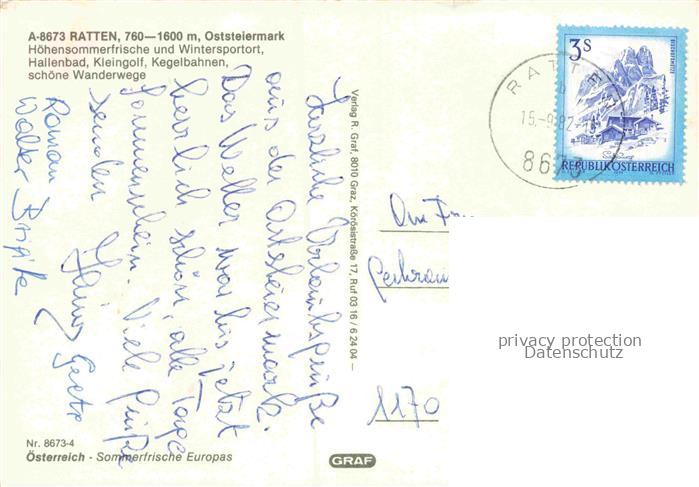 A-8673 RATTEN, 760—1600 m, Oststeiermark
Höhensommerfrische und Wintersportort,
Hallenbad, Kleingolf, Kegelbahnen,
schöne Wanderwege
Herzliche Urlaubsgrüße
aus der Oststeiermark.
Das Wetter war bis jetzt
herrlich schön, alle Tage
Sonnenschein. Viele Grüße
senden
Grete
Roman
Walter Brigitte
Verlag R. Graf, 8010 Graz, Körösistraße 17, Ruf 03 16 / 6 24 04 —
3 S
REPUBLIK ÖSTERREICH
RATTE
15.-9.82
8673
An
1170
privacy protection
Datenschutz
Nr. 8673-4
Österreich - Sommerfrische Europas
GRAF